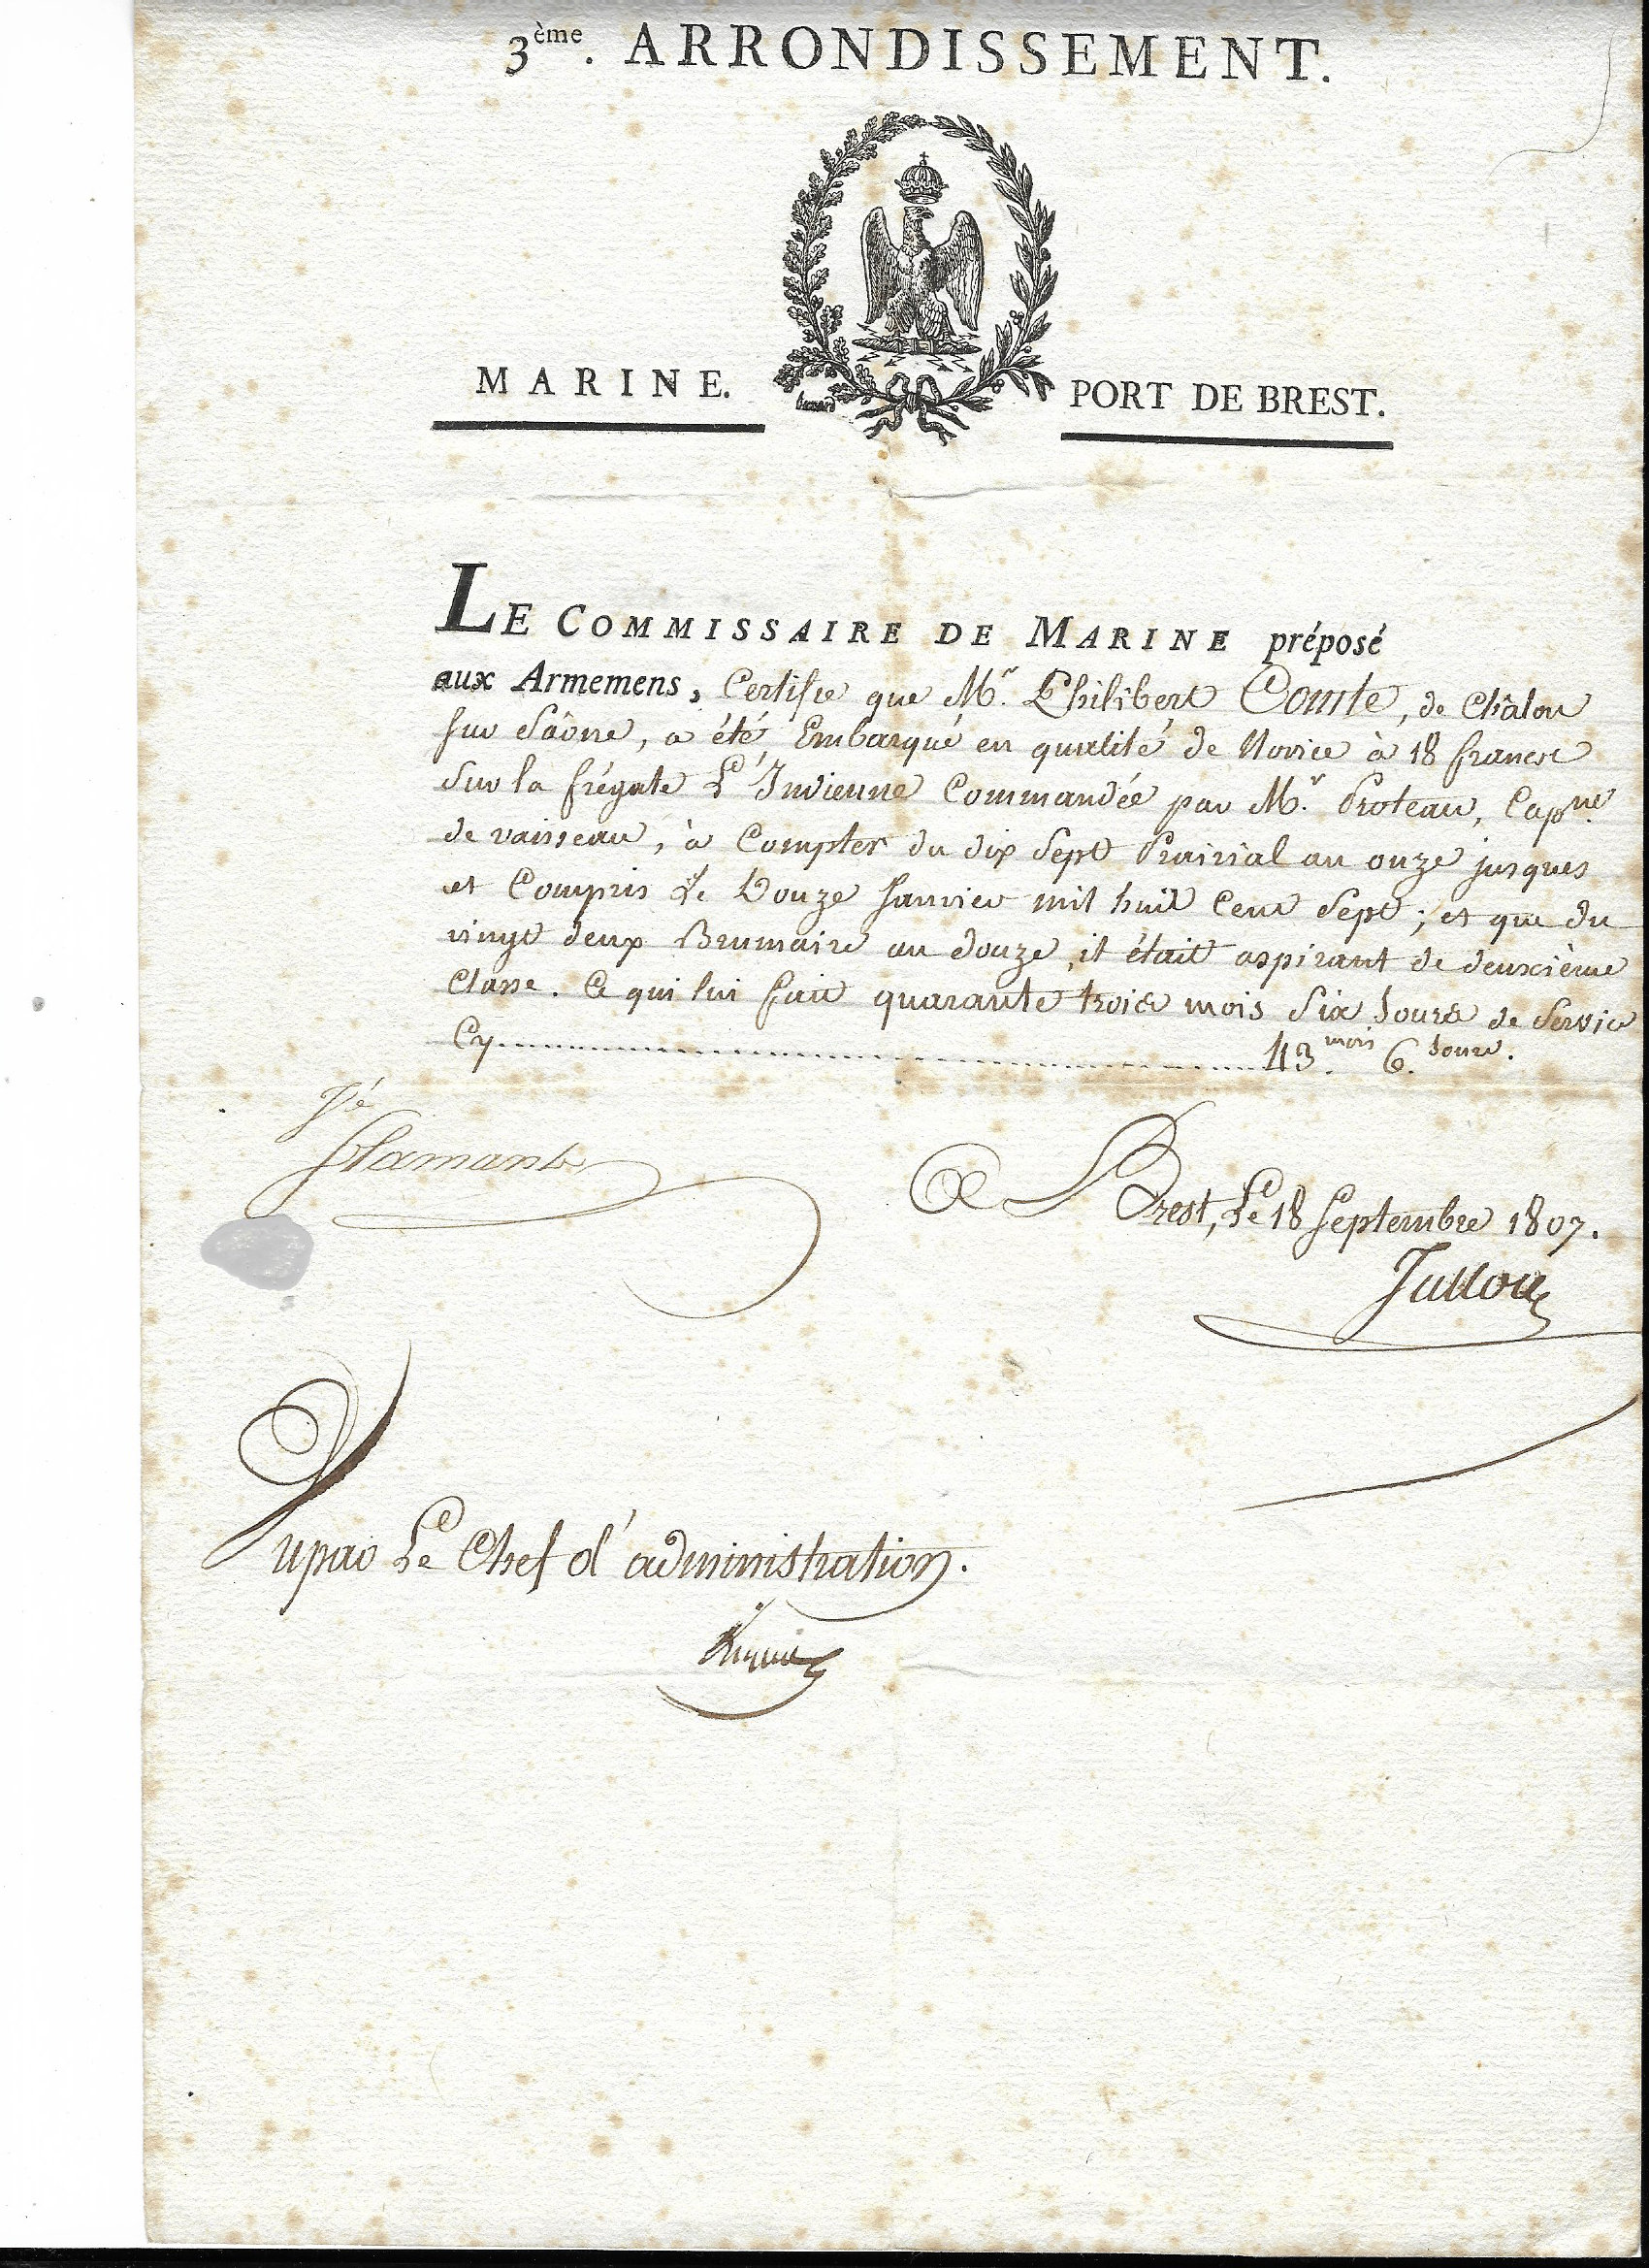 3ème. ARRONDISSEMENT.
MARINE. PORT DE BREST.
LE COMMISSAIRE DE MARINE préposé
aux Armemens, Certifie que Mr. Philibert Comte, de Châlon
sur Sâone, a été Embarqué en qualité de Novice à 18 francs
Sur la frégate L'Indienne Commandée par Mr. Proteau, Capne.
de vaisseau, à Compter du dix Sept Prairial an onze jusques
et Compris Le Douze Janvier mil huit Cent Sept; et que du
vingt deux Brumaire an douze, il était aspirant de deuxième
Classe. Ce qui lui fait quarante trois mois Six Jours de Service
Cy........................43. mois 6. Jours.
Flamant
A Brest, Le 18 Septembre 1807.
Vu par Le Chef d'administration.